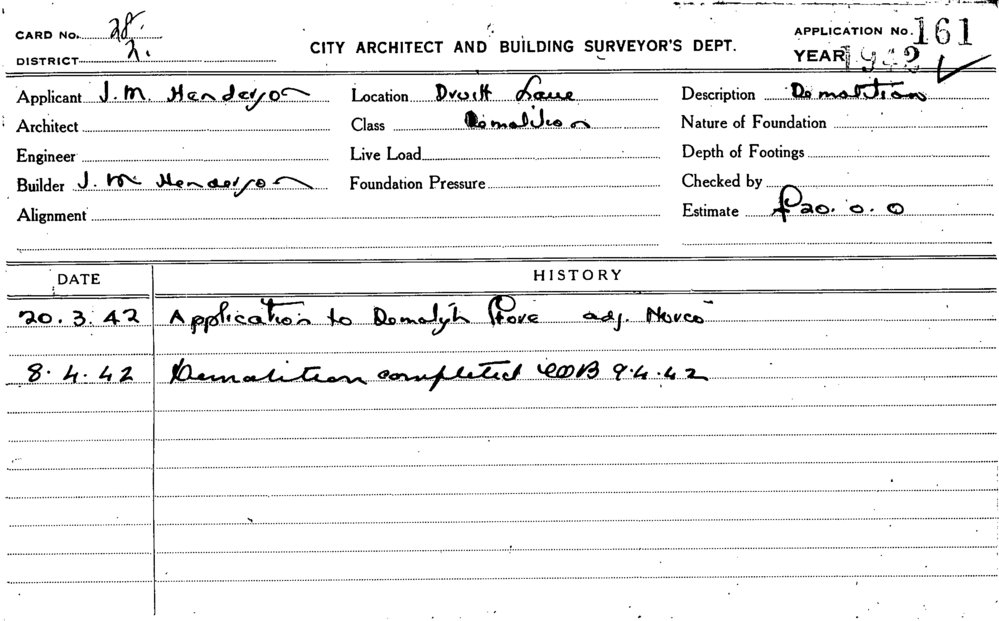 CARD No. 28.
DISTRICT 2.
CITY ARCHITECT AND BUILDING SURVEYOR'S DEPT.
APPLICATION No. 161
YEAR 1942
Applicant J. M. Henderson Location Druitt Lane Description Demolition
Architect Class Demolition Nature of Foundation
Engineer Live Load Depth of Footings
Builder J. M. Henderson Foundation Pressure Checked by
Alignment Estimate £20. 0. 0
DATE HISTORY
20. 3. 42 Application to Demolish Store adj. Norco
8. 4. 42 Demolition completed 9.4.42